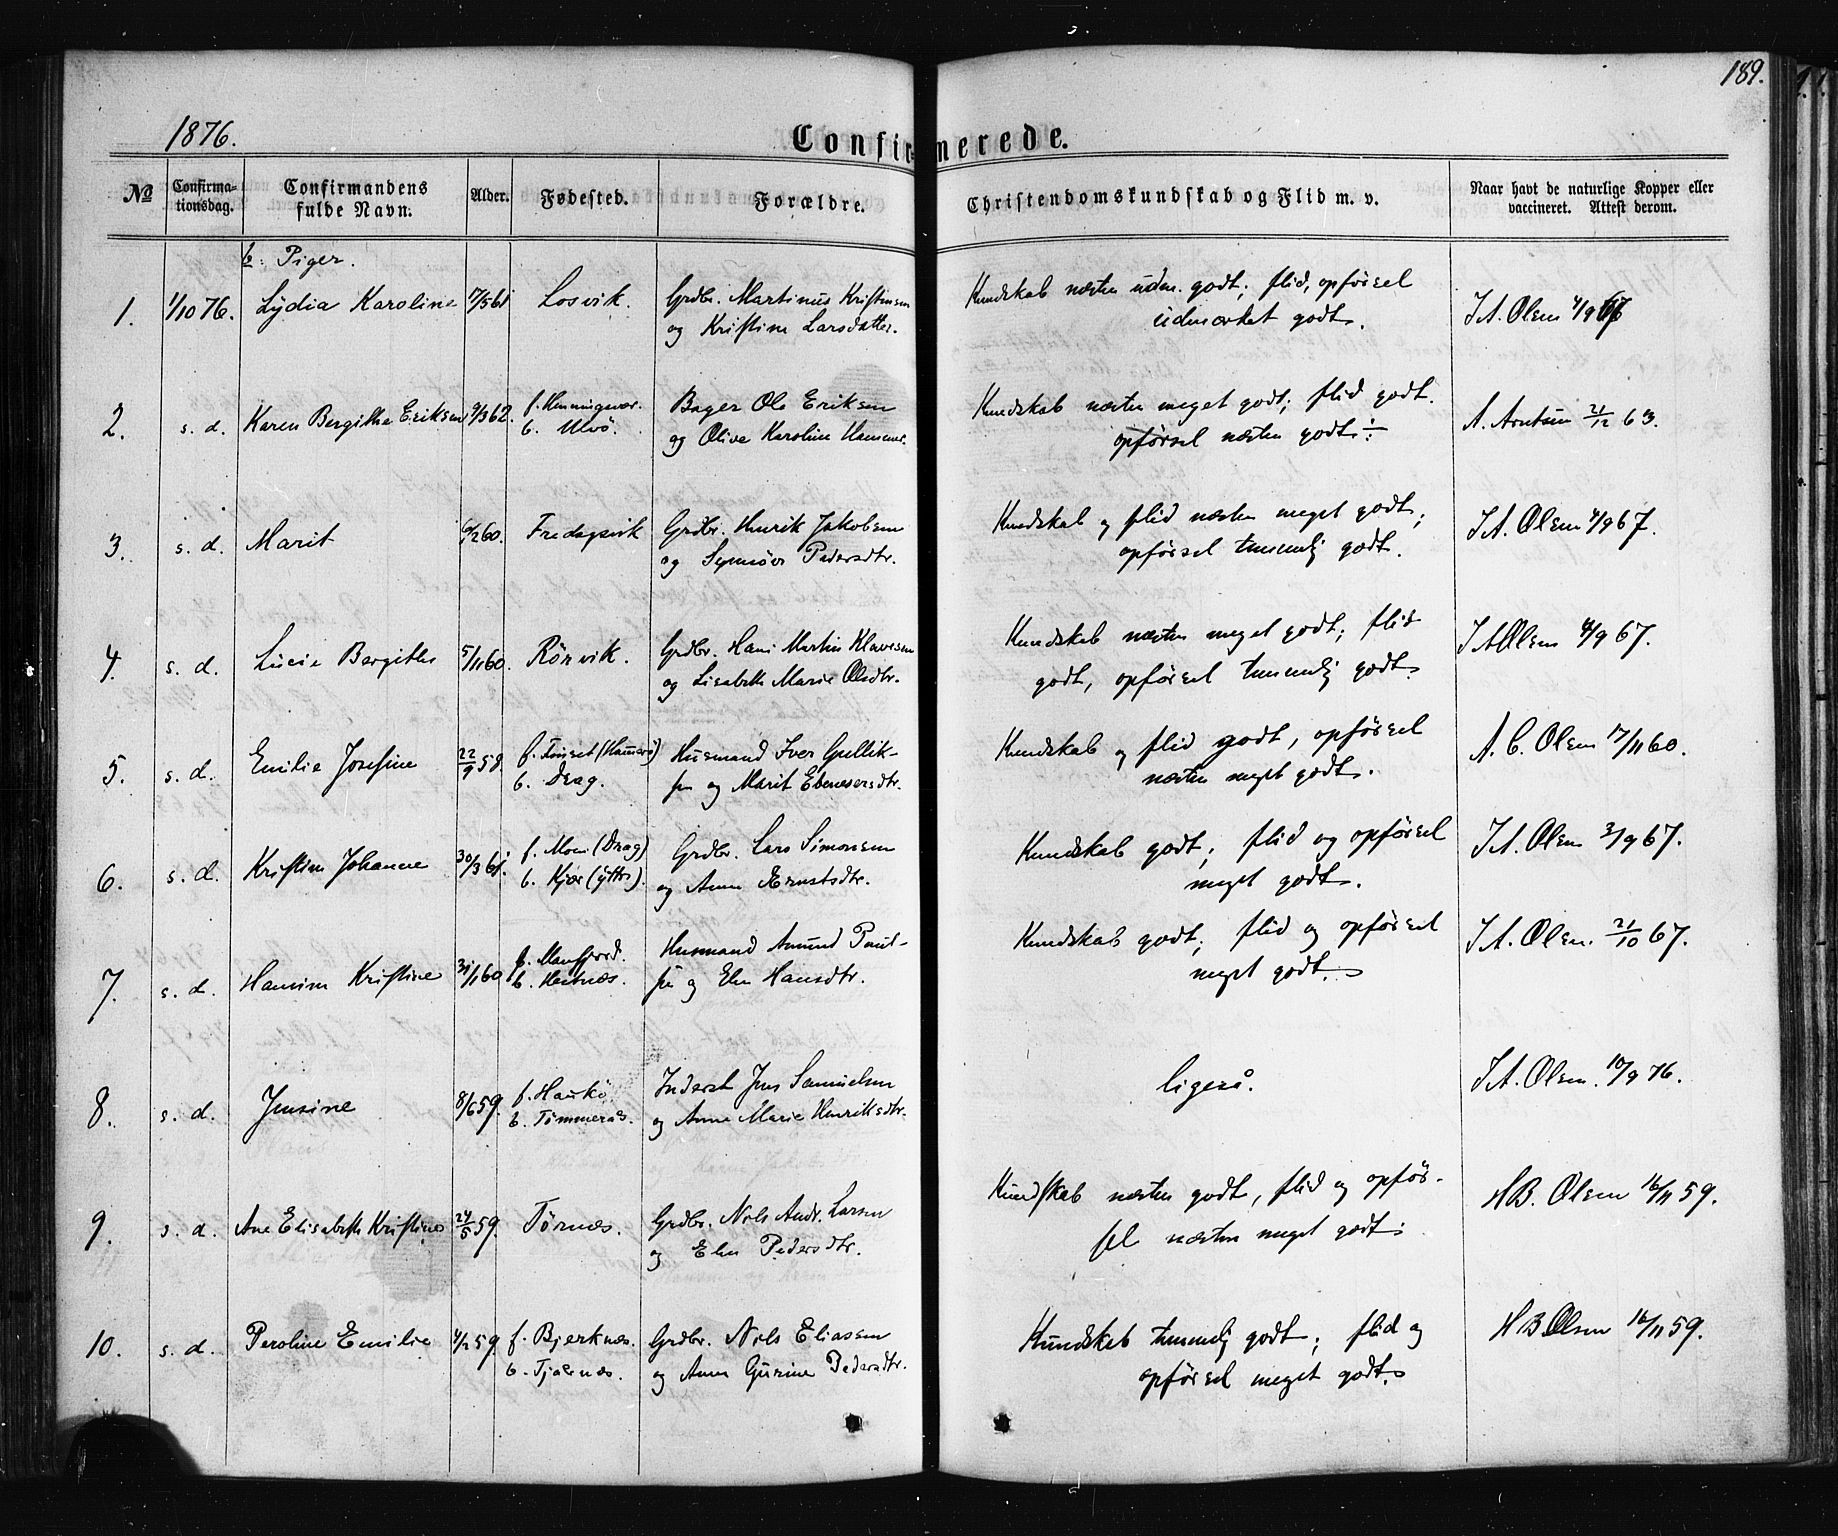 189.
1876.
Confirmerede.
№ Confirma-tionsdag. Confirmandens fulde Navn. Alder. Fødested. Forældre. Christendomskundskab og Flid m. v. Naar havt de naturlige Kopper eller vaccineret. Attest derom.
b: Piger.
1. 1/10 76. Lydia Karoline 17/5 61 Losvik. Grdbr. Martinus Kristensen
og Kristine Larsdatter.
Kundskab næsten udm. godt; flid, opførsel
udmærket godt.
J A. Olsen 4/9 67
2. s. d. Karen Bergitha Eriksen 9/3 62. f. Henningsvær.
b. Ulvø.
Bager Ole Eriksen
og Olive Karoline Hammer.
Kundskab næsten meget godt; flid godt.
opførsel næsten godt
A. Arntsen 21/12 63.
3. s. d. Marit 6/2 60. Fredagsvik Grdbr. Henrik Jakobsen
og Synnøve Pedersdtr.
Kundskab og flid næsten meget godt;
opførsel temmelig godt.
J A. Olsen 4/9 67.
4. s. d. Lucie Bergithe 5/11 60. Rönvik. Grdbr. Hans Martin Klausen
og Lisabeth Marie Olsdtr.
Kundskab næsten meget godt; flid
godt, opførsel temmelig godt.
J A Olsen 4/9 67.
5. s. d. Emilie Josefine 22/9 58. f. Finset (Hamerø)
b. Drag.
Husmand Iver Gullik-
sen og Marit Ebenesersdtr.
Kundskab og flid godt, opførsel
næsten meget godt.
A. C. Olsen 17/11 60.
6. s. d. Kristine Johanne 30/3 61. f. Moen (Drag)
b. Kjær (ytter).
Grdbr. Lars Simonsen
og Anne Ernstsdtr.
Kundskab godt; flid og opførsel
meget godt.
J A. Olsen 3/9 67.
7. s. d. Hansine Kristine 31/1 60 f. Manfjord.
b. Hestnæs.
Husmand Amund Paul-
sen og Elen Hansdtr.
Kundskab godt; flid og opførsel
meget godt.
J A. Olsen. 21/10 67.
8. s. d. Jensine 8/6 59. f. Haukø
b. Tömmeraas.
Inderst Jens Samuelsen
og Anne Marie Henriksdtr.
ligeså.
J A. Olsen. 10/9 76.
9. s. d. Ane Elisabeth Kristine 24/5 59. Tørnæs. Grdbr. Nils Andr. Larsen
og Elen Pedersdtr.
Kundskab næsten godt, flid og opfør-
sel næsten meget godt.
H B. Olsen 16/11 59.
10. s. d. Peroline Emilie 4/2 59. f. Bjerknæs.
b. Tjalnæs.
Grdbr. Nils Eliassen
og Anne Gurine Pedersdtr.
Kundskab temmelig godt; flid og
opførsel meget godt.
H B Olsen 16/11 59.